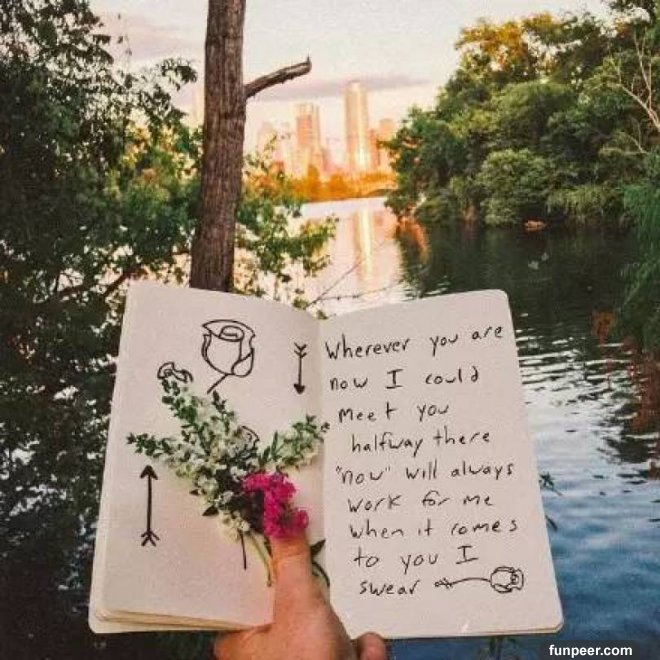 Wherever you are
now I could
meet you
halfway there
"now" will always
work for me
when it comes
to you I
swear
funpeer.com